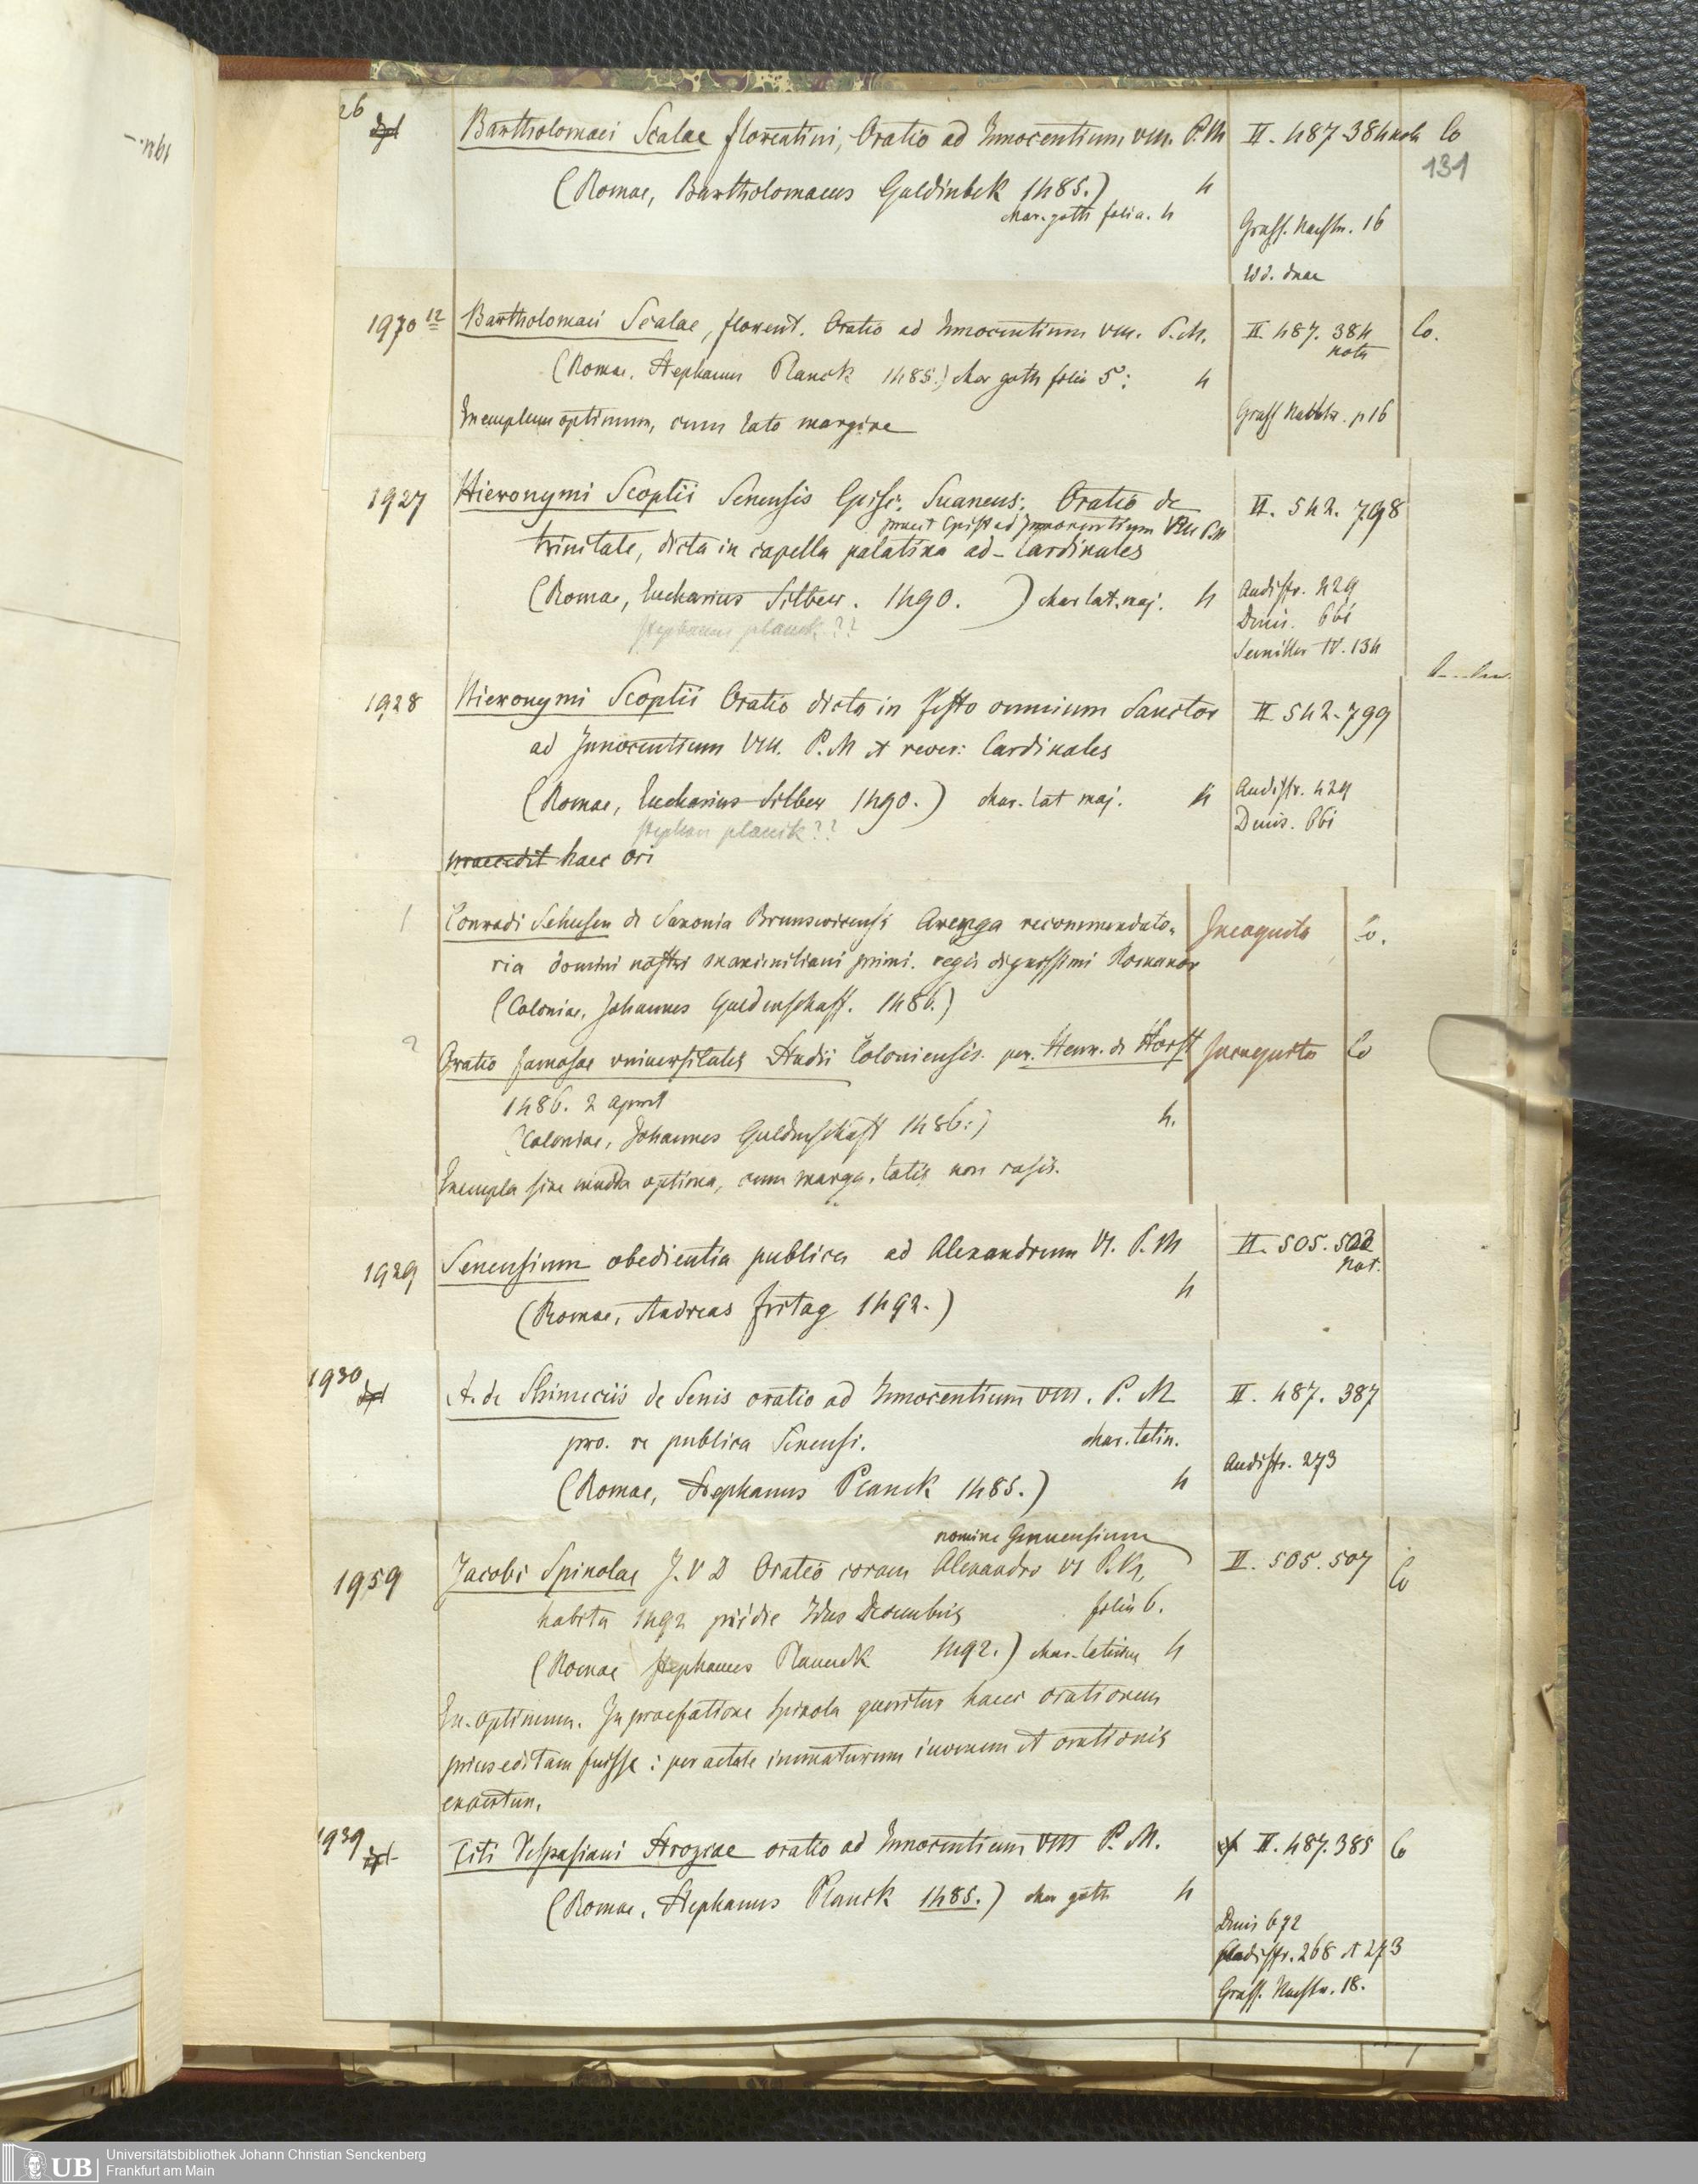 26 dpl Bartholomaei Scalae florentini, Oratio ad Innocentium VIII. P.M II. 487-384 nota Co
131
(Romae, Bartholomaeus Guldinbek 1485.) 4
char. goth folia. 4
Wd. duae
1970 12 Bartholomaei Scalae, florent. Oratio ad Innocentium VIII. P.M. II. 487. 384 nota Co.
(Romae, Stephanus Planck 1485.) char goth folia 5: 4
Exemplum optimum, cum lato margine
1927 Hieronymi Scoptii Senensis Episc: Suanens: Oratio de II. 542. 798
trinitate, dicta in capella palatina ad Cardinales
(Romae, Eucharius Silber. 1490. ) char lat. maj. 4 Audiffr. 429
Stephanus planck ?? Denis. 661
Seemiller IV. 134
1928 Hieronymi Scoptii Oratio dicta in festo omnium Sanctor II 542-799
ad Innocentium VIII. P.M et rever: Cardinales
(Romae, Eucharius Silber 1490.) char. lat maj. 4 Audiffr. 429
Stephan planck ?? Denis. 661
praecedit haec ori
1 Conradi Schusen de Saxonia Brunswicensi Arenga recommendato- Incognita Co.
ria domini nostri maximiliani primi. regis dignissimi Romanor
(Coloniae, Johannes Guldenschaff. 1486.)
2 Oratio famosae vniuersitatis Studii Coloniensis. per. Henr. de Horst Incognita Co
1486. 2 April 4.
(Coloniae, Johannes Guldenschaff 1486.)
Exempla sine optima, cum marg. latis non rasis.
1929 Senensium obedientia publica ad Alexandrum VI. P.M II. 505. 502 not.
(Romae, Andreas fritag 1492.) 4
1930 dpl A. de Shineciis de Senis oratio ad Innocentium VIII. P.M II. 487. 387
pro. re publica Senensi. char. latin.
(Romae, Stephanus Planck 1485.) 4 Audiffr. 273
nomine Genuensium
1959 Jacobi Spinolae J.V D Oratio coram Alexandro VI P.M, II. 505. 507 Co
habita 1492 pridie Idus Decembris folia 6.
(Romae Stephanus Planck 1492.) char. latinus 4
Ex. optimum. In praefatione Spinola queritur hanc orationem
prius editam fuisse: per aetate immaturum iuvenem et orationis
1939 dpl Titi Vespasiani Strozae oratio ad Innocentium VIII P.M. II. 487. 385 Co
(Romae, Stephanus Planck 1485.) char goth 4
Denis 672
Audiffr. 268 et 273
UB Universitätsbibliothek Johann Christian Senckenberg
Frankfurt am Main